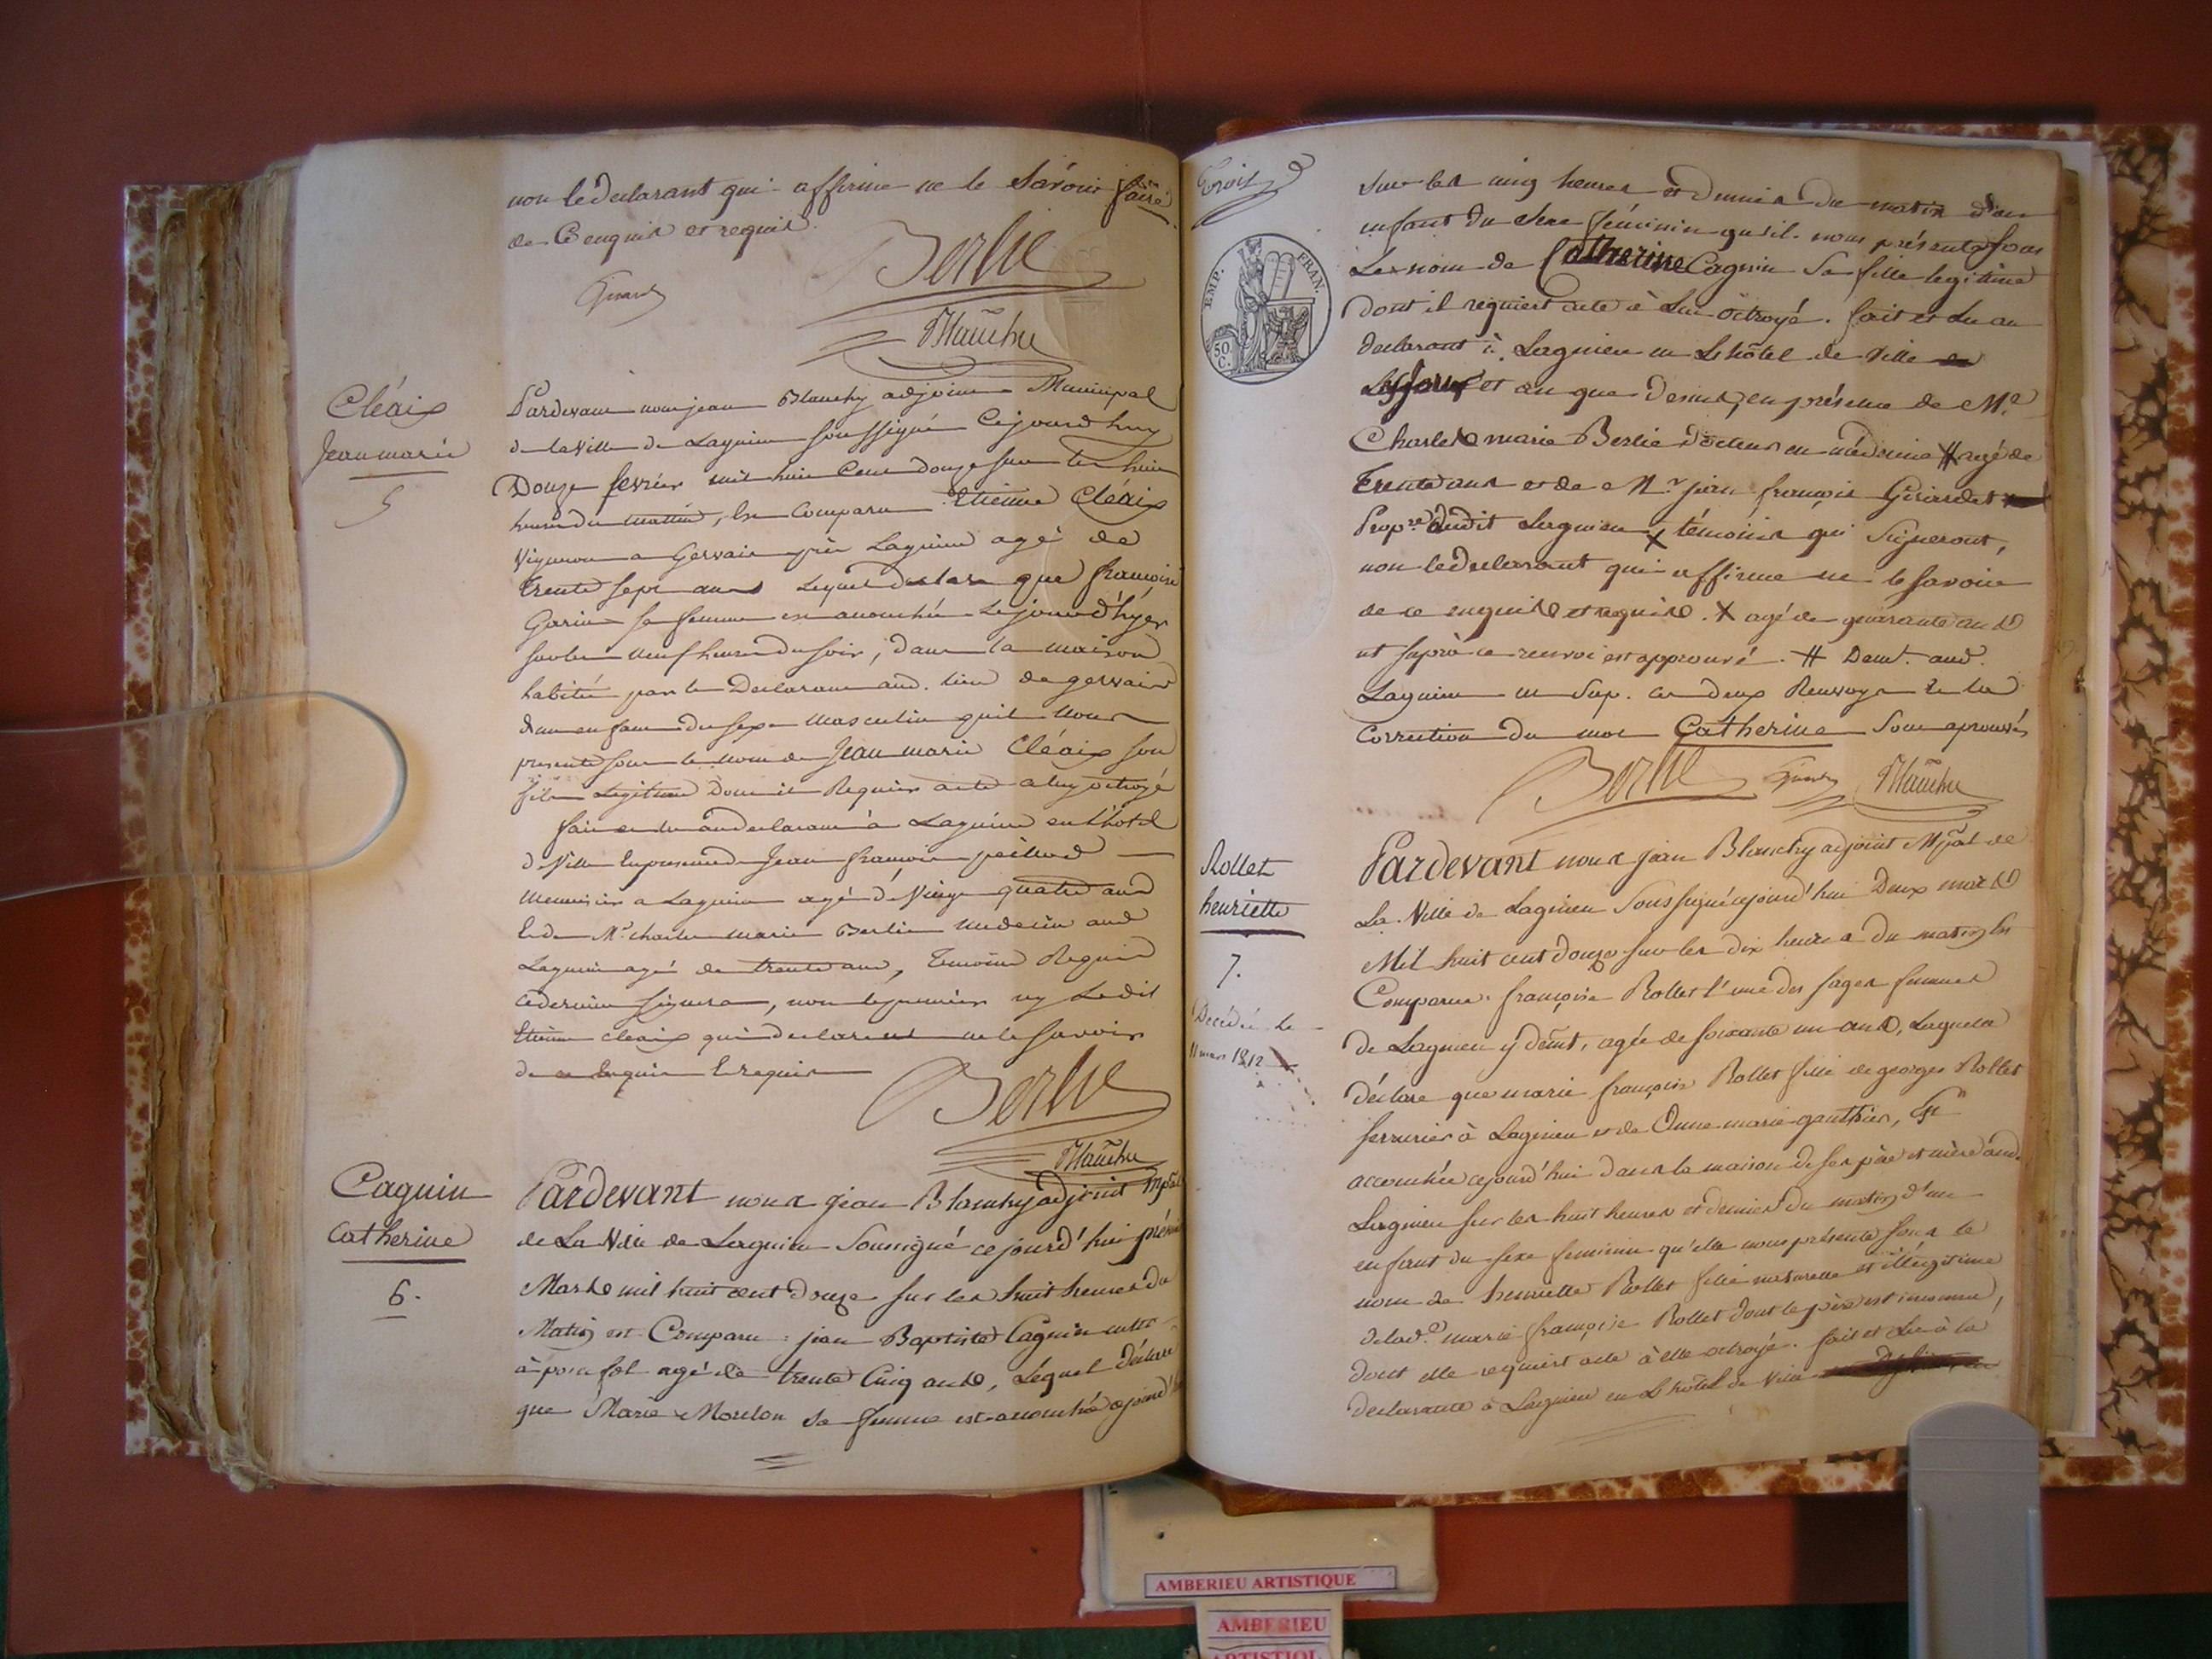 non le déclarant qui affirme ne le Savoir faire
de Ce enquis et requis.
Berlie
Blanchy
Cléaix
Jean marie
5
Pardevant nous jean Blanchy adjoint Municipal
de la Ville de Lagnieu soussigné Cejourd'huy
Douze fevrier mil huit Cent douze sur les huit
heures du mattin, est Comparu Etienne Cléaix
Vigneron a Gervais près Lagnieu agé de
trente sept ans Lequel declare que françoise
Garin sa femme est accouchée Le jour d'hyer
sur les neuf heures du soir, dans la maison
habitée par le Declarant aud. lieu de gervais
d'un enfant du sexe Masculin qu'il Nous
presente sous le nom de Jean marie Cléaix son
fils Legitime Dont il Requier acte a luy octroyé
fait et lu au declarant à Lagnieu en l'hôtel
de Ville En presence de Jean françois
Menuisier a Lagnieu agé de Vingt quatre ans
Et de Mr charles marie Berlie medecin aud.
Lagnieu agé de trente ans, Temoins Requis
ce dernier signera, non le premier ny Ledit
Etienne cleaix qui declarent ne le savoir
de ce Enquis Et requis
Berlie
Blanchy
Caguin
Catherine
6.
Pardevant nous jean Blanchy adjoint Mpal
de La Ville de Lagnieu Soussigné cejourd'hui premier
Mars mil huit cent douze sur les huit heures du
Matin est Comparu jean Baptiste Caguin
à agé de trente Cinq ans, Lequel déclare
que Marie Morelon sa femme est accouchée cejourd'hui
Trois
EMP. FRAN.
50 C.
sur les cinq heures et demies du matin d'un
enfant du Sexe féminin qu'il nous présente sous
Le nom de Catherine Caguin Sa fille legitime
dont il requiert acte à Lui octroyé. fait et Lu au
declarant à Lagnieu en L'hôtel de Ville
et an que dessus, en présence de Mr
Charles marie Berlie docteur en médecine # agé de
Trente ans et de Mr jean françois Girardet
Propre. dudit Lagnieu X témoins qui Signeront,
non le declarant qui affirme ne le savoir
de ce enquis et requis. X agé de quarante ans
ce renvoi est approuvé. # Demt. aud.
Lagnieu ces deux Renvoys Et la
Correction du mot Catherine Sont aprouvés
Berlie Blanchy
Rollet
henriette
7.
Décédée le
11 mars 1812
Pardevant nous jean Blanchy adjoint Mpal de
La Ville de Lagnieu Soussigné cejourd'hui Deux mars
Mil huit cent douze sur les dix heures du matin Est
Comparue françoise Rollet l'une des sages femmes
de Lagnieu y demt, agée de soixante un ans, Laquelle
déclare que marie françoise Rollet fille de georges Rollet
serrurier à Lagnieu et de Anne marie gauthier, Est
accouchée cejourd'hui dans la maison de ses père et mère aud.
Lagnieu sur les huit heures et demies du matin d'un
enfant du sexe feminin qu'elle nous présente sous le
nom de henriette Rollet fille naturelle et illégitime
de lad.e marie françoise Rollet dont le père est inconnu,
dont elle requiert acte à elle octroyé. fait et Lu à la
declarante à Lagnieu en L'hôtel de Ville
AMBERIEU ARTISTIQUE
AMBERIEU
ARTISTIQUE